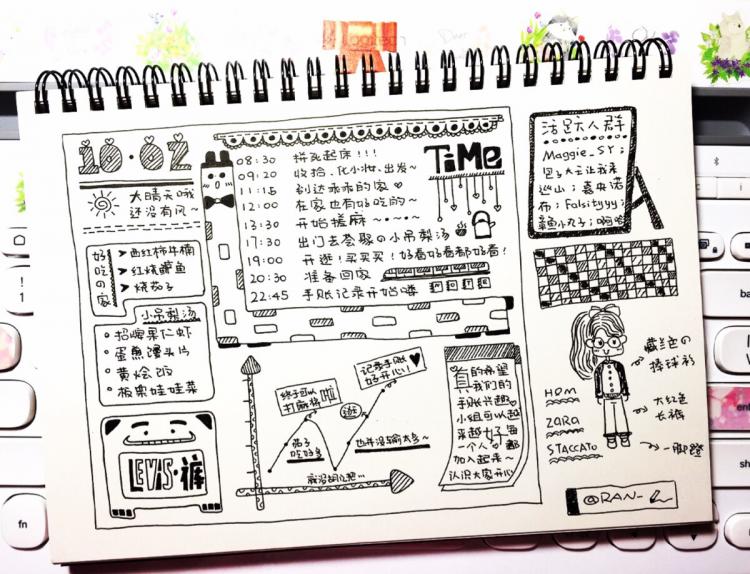 10·02
大晴天哦
还没有风~
好吃の家
西红柿牛楠
红烧鲤鱼
烧茄子
小吊梨汤
招牌果仁虾
蛋煎馒头片
黄烩
板栗娃娃菜
LEVIS·裤
TIME
08:30 拼死起床!!!
09:20 收拾、化小妆、出发~
11:15 到达乖乖的家
12:00 在家也有好吃的~
13:30 开始搓麻~·~·~
17:30 出门去荟聚の小吊梨汤
19:00 开逛!买买买!好看好看都好看!
20:30 准备回家
22:45 手账记录开始噜
终于可以
打麻将啦
记录手账
好开心!
逛
茄子
吃好多
也并没输太多~
真的希望
我们的
手账兴趣
小组可以越
来越好 每
一个人 都
加入起来~
认识大家开心
活跃人群
Maggie_SY;
包子大士让我来
巡山;喜央诺
布;Falsityyy;
章鱼小丸子;啊哈
藏兰边の
棒球衫
H&M
大红色
长裤
ZARA
STACCATO
一脚蹬
@RAN-